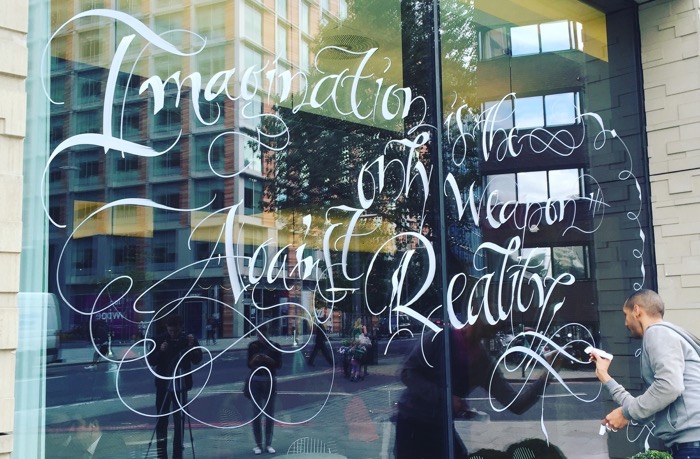 Imagination is the
only Weapon
Against Reality